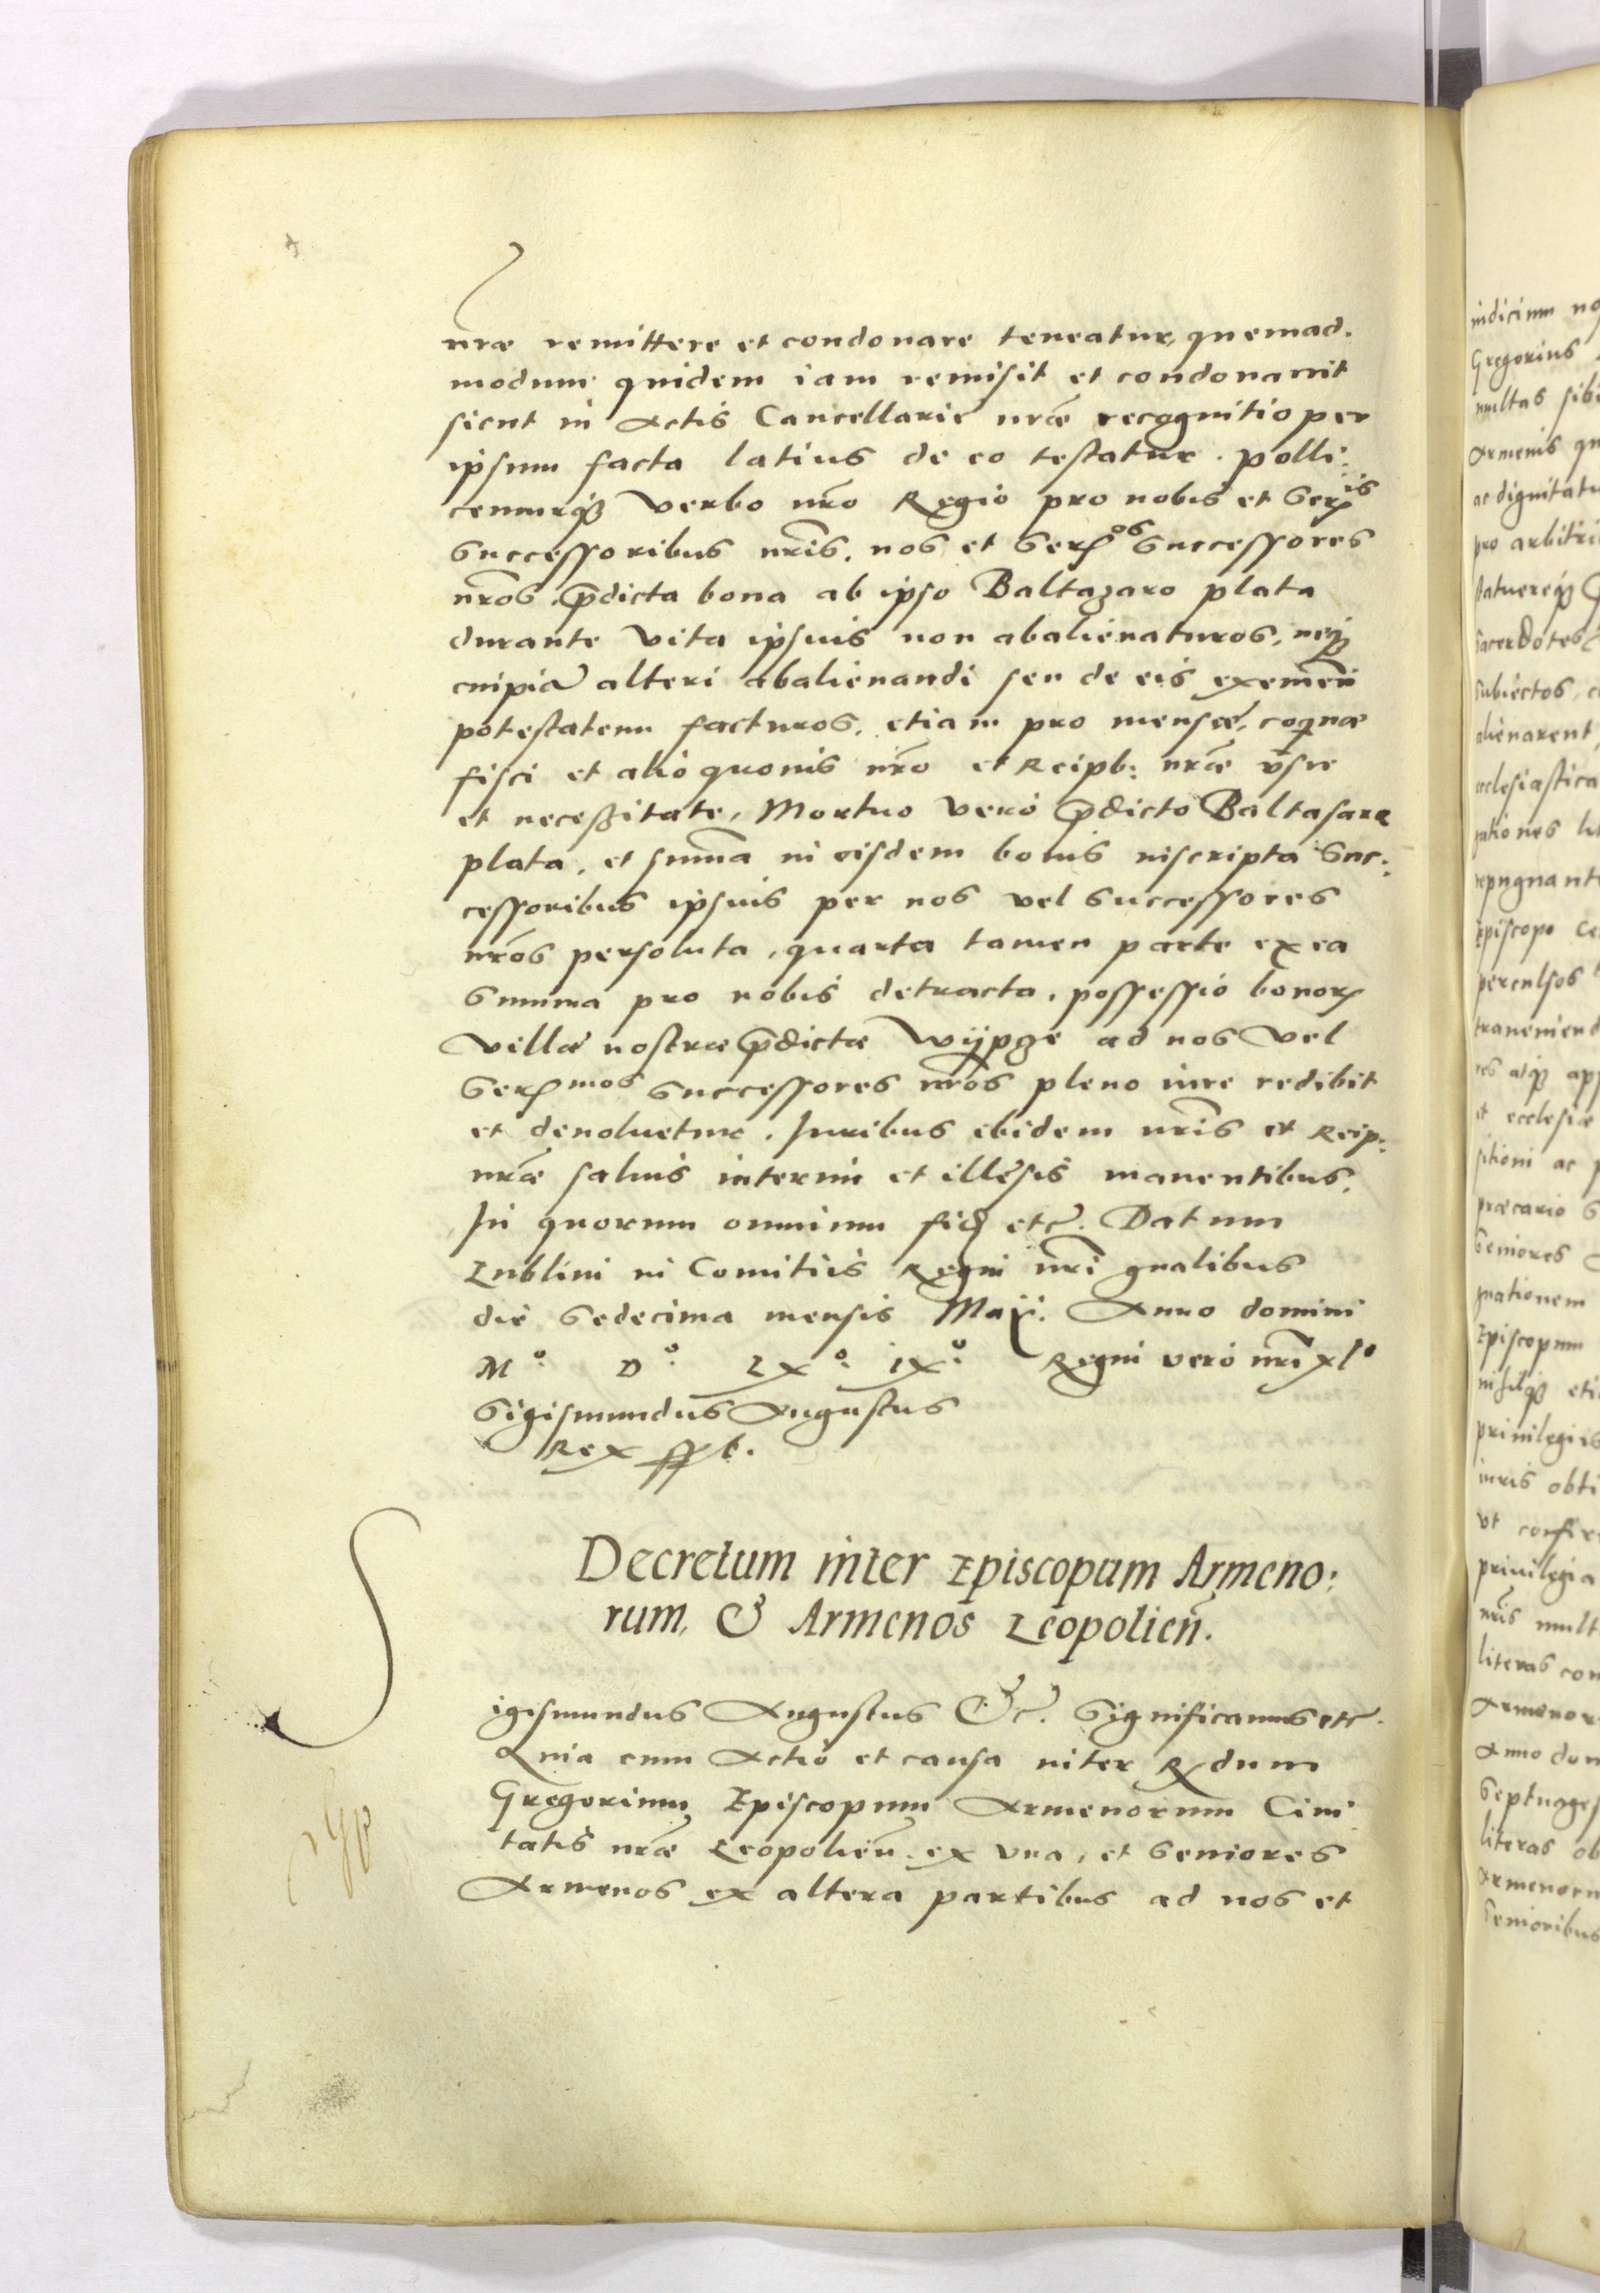 nrãe remittere et condonare teneatur, quemad.
modum quidem iam remisit et condonauit
sicut in Actis Cancellariĕ nrãe recognitio per
ipsum facta latius de eo testatur. polli:
cemurqȝ verbo nrõ Regio pro nobis et Ser^is
Successoribus nrĩs. nos et Ser^os Successores
nrõs. p̃dicta bona ab ipso Baltazaro plata
durante vita ipsius non abalienaturos, neqȝ
cuipia alteri abalienandi seu de eis exemeñ
potestatem facturos, etiam pro mensæ, coqnæ
fisci et alio quouis nrõ et Reipb: nrãe vsu
et necessitate, Mortuo vero p̃dicto Baltasare
plata, et sum̃a in eisdem bonis inscripta Suc:
cessoribus ipsius per nos vel successores
nrõs persoluta, quarta tamen parte ex ea
Summa pro nobis detracta, possessio bonorꝝ
villæ nostræ p̃dictæ Wijpge ad nos vel
Ser^mos successores nrõs pleno iure redibit
et deuoluetur. Juribus ibidem nrĩs et Reip:
nrãe saluis interim et illesis manentibus.
In quorum omnium fid etc. Datum
Lublini in Comitiis Regni nrĩ gnalibus
die Sedecima mensis Maij. Anno domini
M° D° LX° IX° Regni vero nrĩ xl°
Sigismundus Augustus
Rex sst.
Decretum inter Episcopum Armeno:
rum, & Armenos Leopolieñ.
Sigismundus Augustus &c. Significamus etc.
Quia cum Actio et causa inter Rdum
Gregorium Episcopum Armenorum Ciui
tatis nrãe Leopolieñ. ex vna, et Seniores
Armenos ex altera partibus ad nos et
iudicium
Gregorius
multas sibi
Armenis
ac dignitat
pro arbitri
statuereqȝ
sacerdotes
subiectos,
alienarent,
ecclesiastica
repugnant
Episcopo
perculsos
res atqȝ
et ecclesiæ
sitioni ac
præcario
Seniores
Episcopum
nihilqȝ
priuilegiis
iuris
vt
priuilegia
nrĩs
literas
Armenor
Anno
Septuages
literas
Armenoru
Senioribus